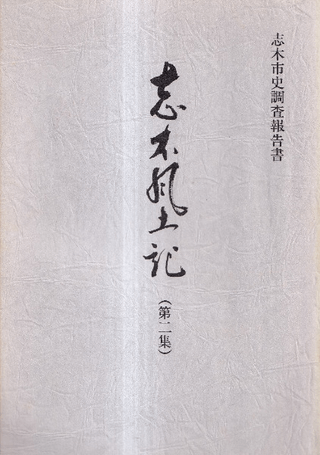 志木市史調査報告書
志木風土記
(第二集)